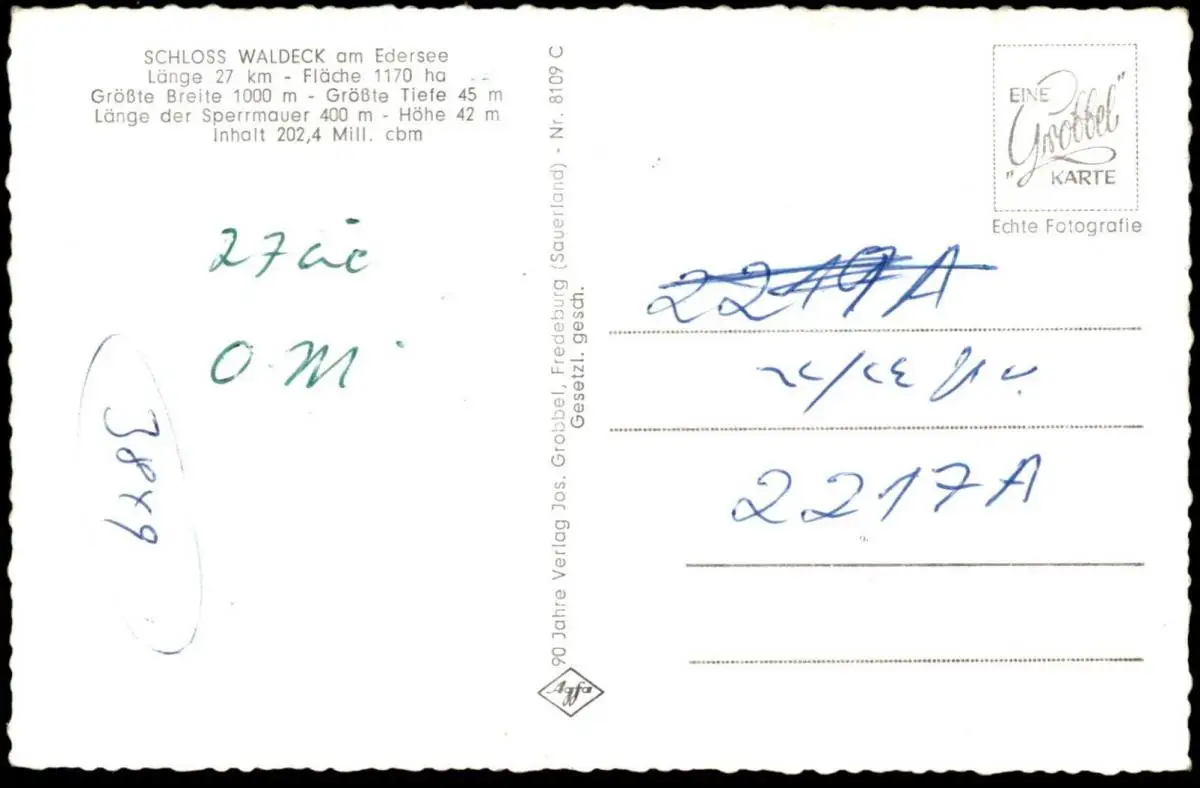 SCHLOSS WALDECK am Edersee
Länge 27 km - Fläche 1170 ha
Größte Breite 1000 m - Größte Tiefe 45 m
Länge der Sperrmauer 400 m - Höhe 42 m
Inhalt 202,4 Mill. cbm
27
O. M.
3849
90 Jahre Verlag Jos. Grobbel, Fredeburg (Sauerland) - Nr. 8109 C
Gesetzl. gesch.
Agfa
EINE
"Grobbel"
KARTE
Echte Fotografie
2217A